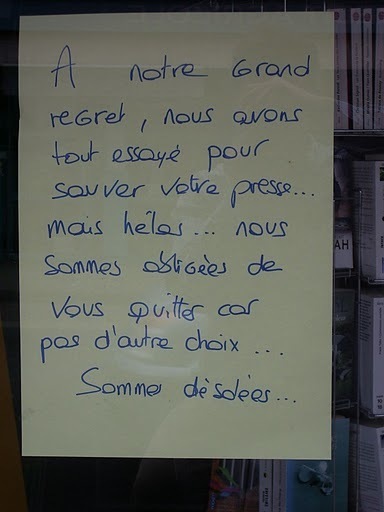 A notre Grand
regret, nous avons
tout essayé pour
sauver votre presse...
mais hélas... nous
sommes obligées de
vous quitter car
pas d'autre choix ...
Sommes désolées...
AH